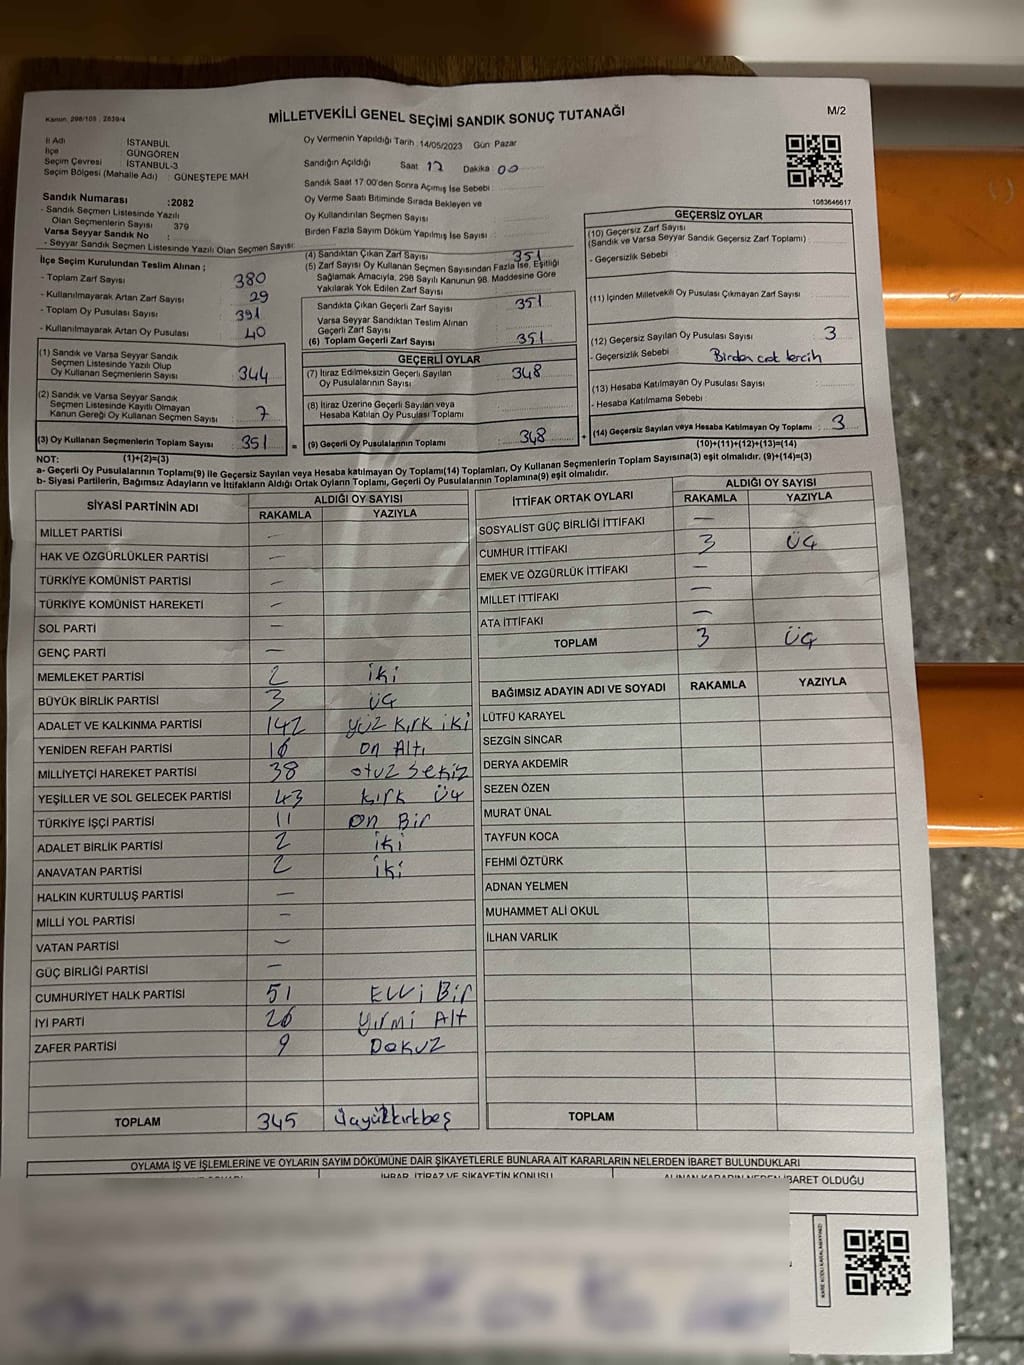 Kanun, 298/105 , 2839/4
MİLLETVEKİLİ GENEL SEÇİMİ SANDIK SONUÇ TUTANAĞI
M/2
İl Adı : İSTANBUL
İlçe : GÜNGÖREN
Seçim Çevresi : İSTANBUL-3
Seçim Bölgesi (Mahalle Adı) : GÜNEŞTEPE MAH
Sandık Numarası :2082
- Sandık Seçmen Listesinde Yazılı
Olan Seçmenlerin Sayısı : 379
Varsa Seyyar Sandık No :
- Seyyar Sandık Seçmen Listesinde Yazılı Olan Seçmen Sayısı:
Oy Vermenin Yapıldığı Tarih : 14/05/2023 Gün: Pazar
Sandığın Açıldığı Saat 17 Dakika 00
Sandık Saat 17:00'den Sonra Açımış İse Sebebi :
Oy Verme Saati Bitiminde Sırada Bekleyen ve
Oy Kullandırılan Seçmen Sayısı
Birden Fazla Sayım Döküm Yapılmış İse Sayısı :
1083646617
İlçe Seçim Kurulundan Teslim Alınan ;
- Toplam Zarf Sayısı : 380
- Kullanılmayarak Artan Zarf Sayısı : 29
- Toplam Oy Pusulası Sayısı : 391
- Kullanılmayarak Artan Oy Pusulası : 40
(1) Sandık ve Varsa Seyyar Sandık
Seçmen Listesinde Yazılı Olup
Oy Kullanan Seçmenlerin Sayısı : 344
(2) Sandık ve Varsa Seyyar Sandık
Seçmen Listesinde Kayıtlı Olmayan
Kanun Gereği Oy Kullanan Seçmen Sayısı : 7
(3) Oy Kullanan Seçmenlerin Toplam Sayısı : 351
(1)+(2)=(3)
(4) Sandıktan Çıkan Zarf Sayısı : 351
(5) Zarf Sayısı Oy Kullanan Seçmen Sayısından Fazla İse, Eşitliği
Sağlamak Amacıyla, 298 Sayılı Kanunun 98. Maddesine Göre
Yakılarak Yok Edilen Zarf Sayısı
Sandıkta Çıkan Geçerli Zarf Sayısı : 351
Varsa Seyyar Sandıktan Teslim Alınan
Geçerli Zarf Sayısı
(6) Toplam Geçerli Zarf Sayısı : 351
GEÇERLİ OYLAR
(7) İtiraz Edilmeksizin Geçerli Sayılan
Oy Pusulalarının Sayısı : 348
(8) İtiraz Üzerine Geçerli Sayılan veya
Hesaba Katılan Oy Pusulası Toplamı
= (9) Geçerli Oy Pusulalarının Toplamı : 348
GEÇERSİZ OYLAR
(10) Geçersiz Zarf Sayısı :
(Sandık ve Varsa Seyyar Sandık Geçersiz Zarf Toplamı)
- Geçersizlik Sebebi :
(11) İçinden Milletvekili Oy Pusulası Çıkmayan Zarf Sayısı
(12) Geçersiz Sayılan Oy Pusulası Sayısı : 3
- Geçersizlik Sebebi : Birden çok tercih
(13) Hesaba Katılmayan Oy Pusulası Sayısı
- Hesaba Katılmama Sebebi :
+ (14) Geçersiz Sayılan veya Hesaba Katılmayan Oy Toplamı : 3
(10)+(11)+(12)+(13)=(14)
NOT:
a- Geçerli Oy Pusulalarının Toplamı(9) ile Geçersiz Sayılan veya Hesaba katılmayan Oy Toplamı(14) Toplamları, Oy Kullanan Seçmenlerin Toplam Sayısına(3) eşit olmalıdır. (9)+(14)=(3)
b- Siyasi Partilerin, Bağımsız Adayların ve İttifakların Aldığı Ortak Oyların Toplamı, Geçerli Oy Pusulalarının Toplamına(9) eşit olmalıdır.
SİYASİ PARTİNİN ADI ALDIĞI OY SAYISI
RAKAMLA YAZIYLA
MİLLET PARTİSİ –
HAK VE ÖZGÜRLÜKLER PARTİSİ –
TÜRKİYE KOMÜNİST PARTİSİ –
TÜRKİYE KOMÜNİST HAREKETİ –
SOL PARTİ –
GENÇ PARTİ –
MEMLEKET PARTİSİ 2 iki
BÜYÜK BİRLİK PARTİSİ 3 üç
ADALET VE KALKINMA PARTİSİ 142 yüz kırk iki
YENİDEN REFAH PARTİSİ 16 on Altı
MİLLİYETÇİ HAREKET PARTİSİ 38 otuz Sekiz
YEŞİLLER VE SOL GELECEK PARTİSİ 43 kırk üç
TÜRKİYE İŞÇİ PARTİSİ 11 on Bir
ADALET BİRLİK PARTİSİ 2 iki
ANAVATAN PARTİSİ 2 iki
HALKIN KURTULUŞ PARTİSİ –
MİLLİ YOL PARTİSİ –
VATAN PARTİSİ –
GÜÇ BİRLİĞİ PARTİSİ –
CUMHURİYET HALK PARTİSİ 51 Elli Bir
İYİ PARTİ 26 Yirmi Alt
ZAFER PARTİSİ 9 Dokuz
TOPLAM 345 Üçyüzkırkbeş
İTTİFAK ORTAK OYLARI ALDIĞI OY SAYISI
RAKAMLA YAZIYLA
SOSYALİST GÜÇ BİRLİĞİ İTTİFAKI –
CUMHUR İTTİFAKI 3 üç
EMEK VE ÖZGÜRLÜK İTTİFAKI –
MİLLET İTTİFAKI –
ATA İTTİFAKI –
TOPLAM 3 üç
BAĞIMSIZ ADAYIN ADI VE SOYADI RAKAMLA YAZIYLA
LÜTFÜ KARAYEL
SEZGİN SİNCAR
DERYA AKDEMİR
SEZEN ÖZEN
MURAT ÜNAL
TAYFUN KOCA
FEHMİ ÖZTÜRK
ADNAN YELMEN
MUHAMMET ALİ OKUL
İLHAN VARLIK
TOPLAM
OYLAMA İŞ VE İŞLEMLERİNE VE OYLARIN SAYIM DÖKÜMÜNE DAİR ŞİKAYETLERLE BUNLARA AİT KARARLARIN NELERDEN İBARET BULUNDUKLARI
İHBAR, İTİRAZ VE ŞİKAYETİN KONUSU ALINAN KARARIN NEDEN İBARET OLDUĞU